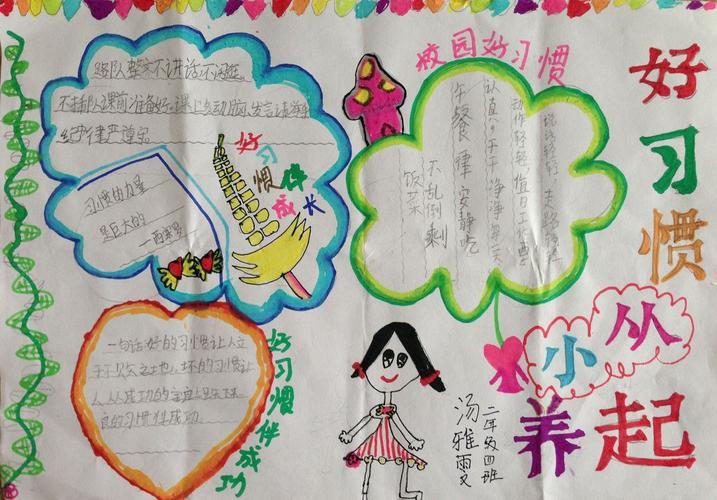 好
习
惯
从小
养起
校园好习惯
说话轻轻,走路轻轻
动作轻轻,值日工作要
认真。干干净净每一天
午餐 律安静吃
不乱倒剩
饭菜
路队整齐不讲话不
课前准备好。课上多动脑,发言请举手
纪律严遵守。
习惯的力量
是巨大的
好习惯伴成长
一句话:好的习惯让人立
于不败之地,坏的习惯让
人从成功的宝座上跌下来
良的习惯性成功。
好习惯伴成功
二年级四班
汤雅雯